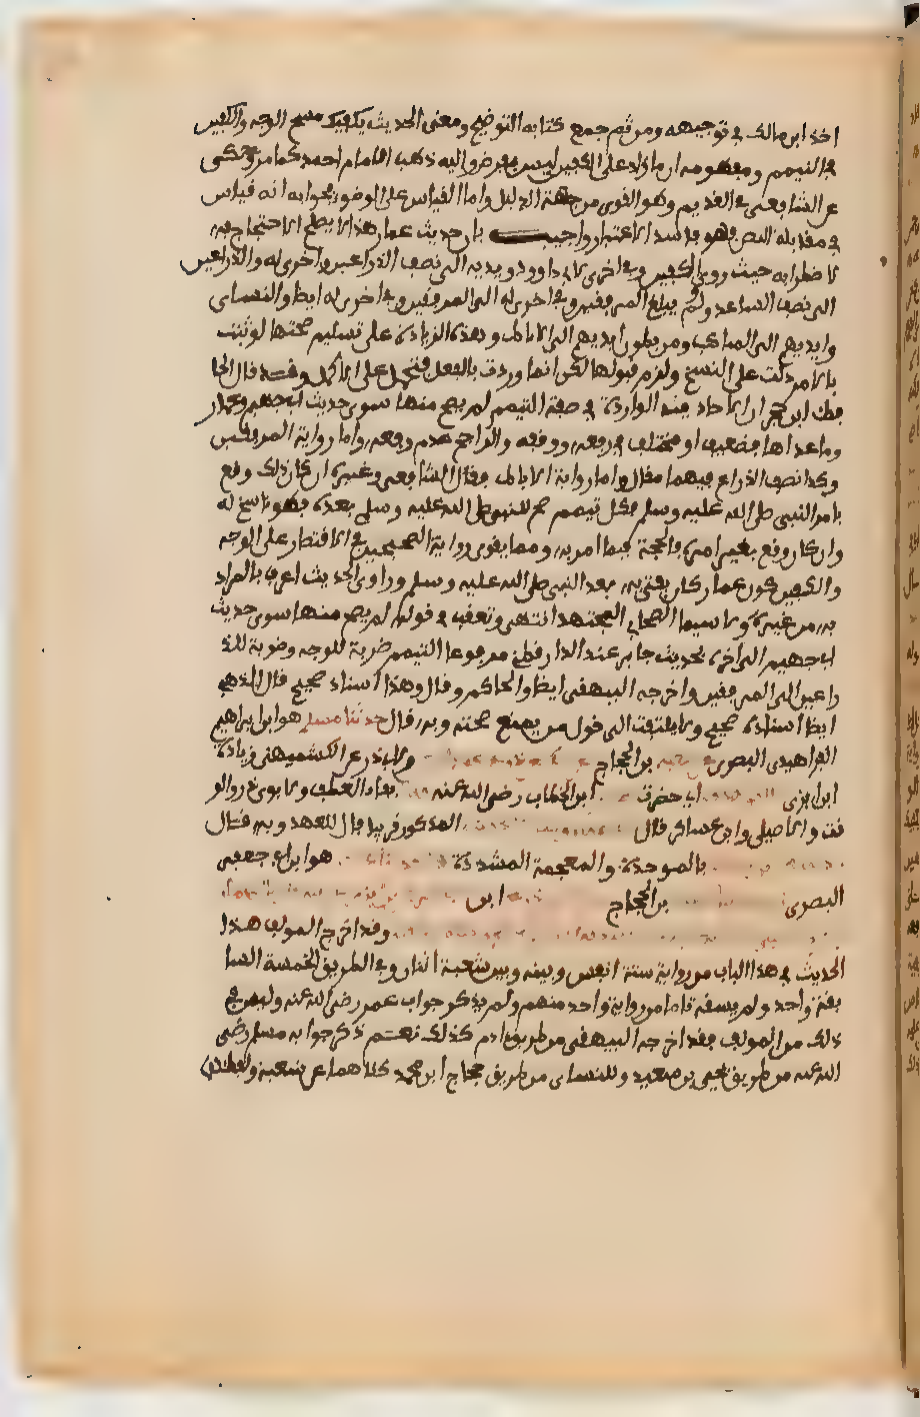 اخذ ابن مالك في توجيهه ومن ثم جمع كتابه التوضيح ومعنى الحديث يكفيك مسح الوجه والكفين
في التيمم ومفهومه ان ما زاد على الكفين ليس بفرض واليه ذهب الامام احمد كما مر وحكى
عن الشافعي في القديم وهو القوي من جهة الدليل واما القياس على الوضوء فجوابه انه قياس
في مقابلة النص فهو فاسد الاعتبار واجيب بان حديث عمار هذا لا يصلح الاحتجاج به
لاضطرابه حيث روي الكفين وفي اخرى لابي داوود ويديه الى نصف الذراعين وفي اخرى له والذراعين
الى نصف الساعد ولم يبلغ المرفقين وفي اخرى له الى المرفقين وفي اخرى له ايضا والنساي
وايديهم الى المناكب ومن بطون ايديهم الى الاباط وهذه الزيادة على تسليم صحتها لو ثبتت
بالامر دلت على النسخ ولزم قبولها لكن انما وردت بالفعل فتحمل على الاكمل وقد قال الحا
فظ ابن حجر ان الاحاديث الواردة في صفة التيمم لم يصح منها سوى حديث ابي جهيم وعمار
وما عداها فضعيف او مختلف في رفعه ووقفه والراجح عدم رفعه واما رواية المرفقين
وكذا نصف الذراع ففيهما مقال واما رواية الاباط فقال الشافعي وغيره ان كان ذلك وقع
بامر النبي صلى الله عليه وسلم فكل تيمم صح للنبي صلى الله عليه وسلم بعده فهو ناسخ له
وان كان وقع بغير امره فالحجة فيما امر به ومما يقوى رواية الصحيحين في الاقتصار على الوجه
والكفين كون عمار كان يفتي به بعد النبي صلى الله عليه وسلم وراوي الحديث اعرف بالمراد
به من غيره ولا سيما الصحابي المجتهد انتهى وتعقب في قوله لم يصح منها سوى حديث
ابي جهيم الى اخره بحديث جابر عند الدارقطني مرفوعا التيمم ضربة للوجه وضربة للذ
راعين الى المرفقين واخرجه البيهقي ايضا والحاكم وقال وهذا اسناد صحيح قال الذهبي
ايضا اسناده صحيح ولا يلتفت الى قول من يمنع صحته وبه قال حدثنا مسلم هو ابن ابراهيم
الفراهيدي البصري بن الحجاج ولابي ذر عن الكشميهني زيادة
ابن ابزى انه حضرت ابن الخطاب رضي الله عنه بفاء العطف ولابوي ذر والو
قت والاصيلي وابن عساكر قال المذكور قريبا فال للعهد وبه قال
بالموحدة والمعجمة المشددة هو ابن جعفر
البصري بن الحجاج ابن
وقد اخرج المؤلف هذا
الحديث في هذا الباب من رواية ستة انفس وبينه وبين شعبة اثنان وفي الطريق الخمسة السا
بقة واحد ولم يسقه تاما من رواية واحد منهم ولم يذكر جواب عمر رضي الله عنه وليس في
ذلك من المولف فقد اخرجه البيهقي من طريق ادم كذلك نعم ذكر جوابه مسلم رضي
الله عنه من طريق يحيى بن سعيد وللنساي من طريق حجاج ابن محمد كلاهما عن شعبة ولفظهما